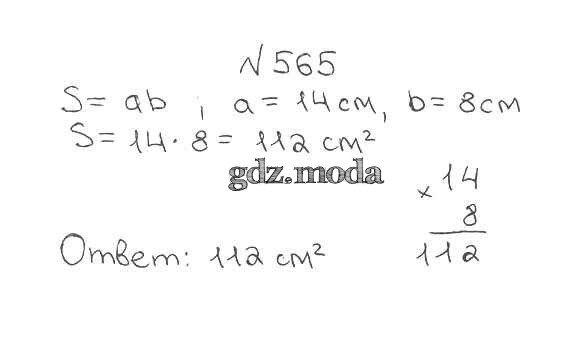 № 565
S = ab ; a = 14 см, b = 8 см
S = 14 · 8 = 112 см²
gdz.moda
× 14
8
112
Ответ: 112 см²